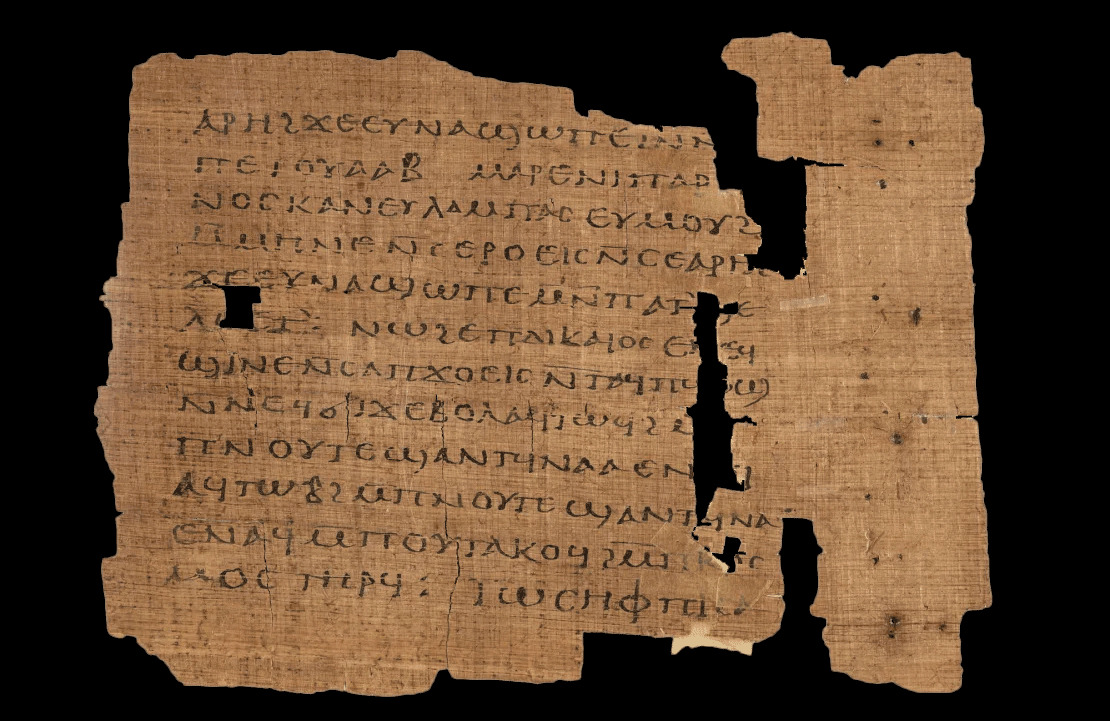 ⲁⲣⲏϩϫⲉⲉⲩⲛⲁϣⲱⲡⲉ
ⲡⲉⲧⲟⲩⲁⲁⲃ ⲙⲁⲣⲉⲛⲓⲡⲁⲣ
ⲛⲟⲥ ⲕⲁⲛⲉⲩⲗⲁⲙⲡⲁⲥ ⲉⲩⲙⲟⲩϩ
ⲛ̄ⲥⲉⲣⲟⲉⲓⲥ ⲛ̄ⲥⲉⲁⲣⲏ
ϫⲉⲉⲩⲛⲁϣⲱⲡⲉ ⲙⲛ̄ⲡⲁⲅ ⲅⲉ
ⲛⲱϩⲉⲡⲇⲓⲕⲁⲓⲟⲥ
ϣⲓⲛⲉ ⲛ̄ⲥⲁⲡϫⲟⲉⲓⲥ ⲛⲧⲁϥⲡ
ⲛ̄ⲛⲉϥϭⲓϫ ⲉⲃⲟⲗ ⲁϥⲧⲱϥϩ
ⲡⲛⲟⲩⲧⲉ ϣⲁⲛⲧϥⲛⲁⲁ
ⲁϥⲧⲱⲃϩ ⲙⲡⲛⲟⲩⲧⲉ ϣⲁⲛⲧϥⲛⲁ
ⲉⲛⲁϥ ⲙⲡⲟⲩⲧⲁⲕⲟϥ ϩⲙⲡⲕⲟⲥ
ⲙⲟⲥ ⲧⲏⲣϥ : ⲓⲱⲥⲏⲫ